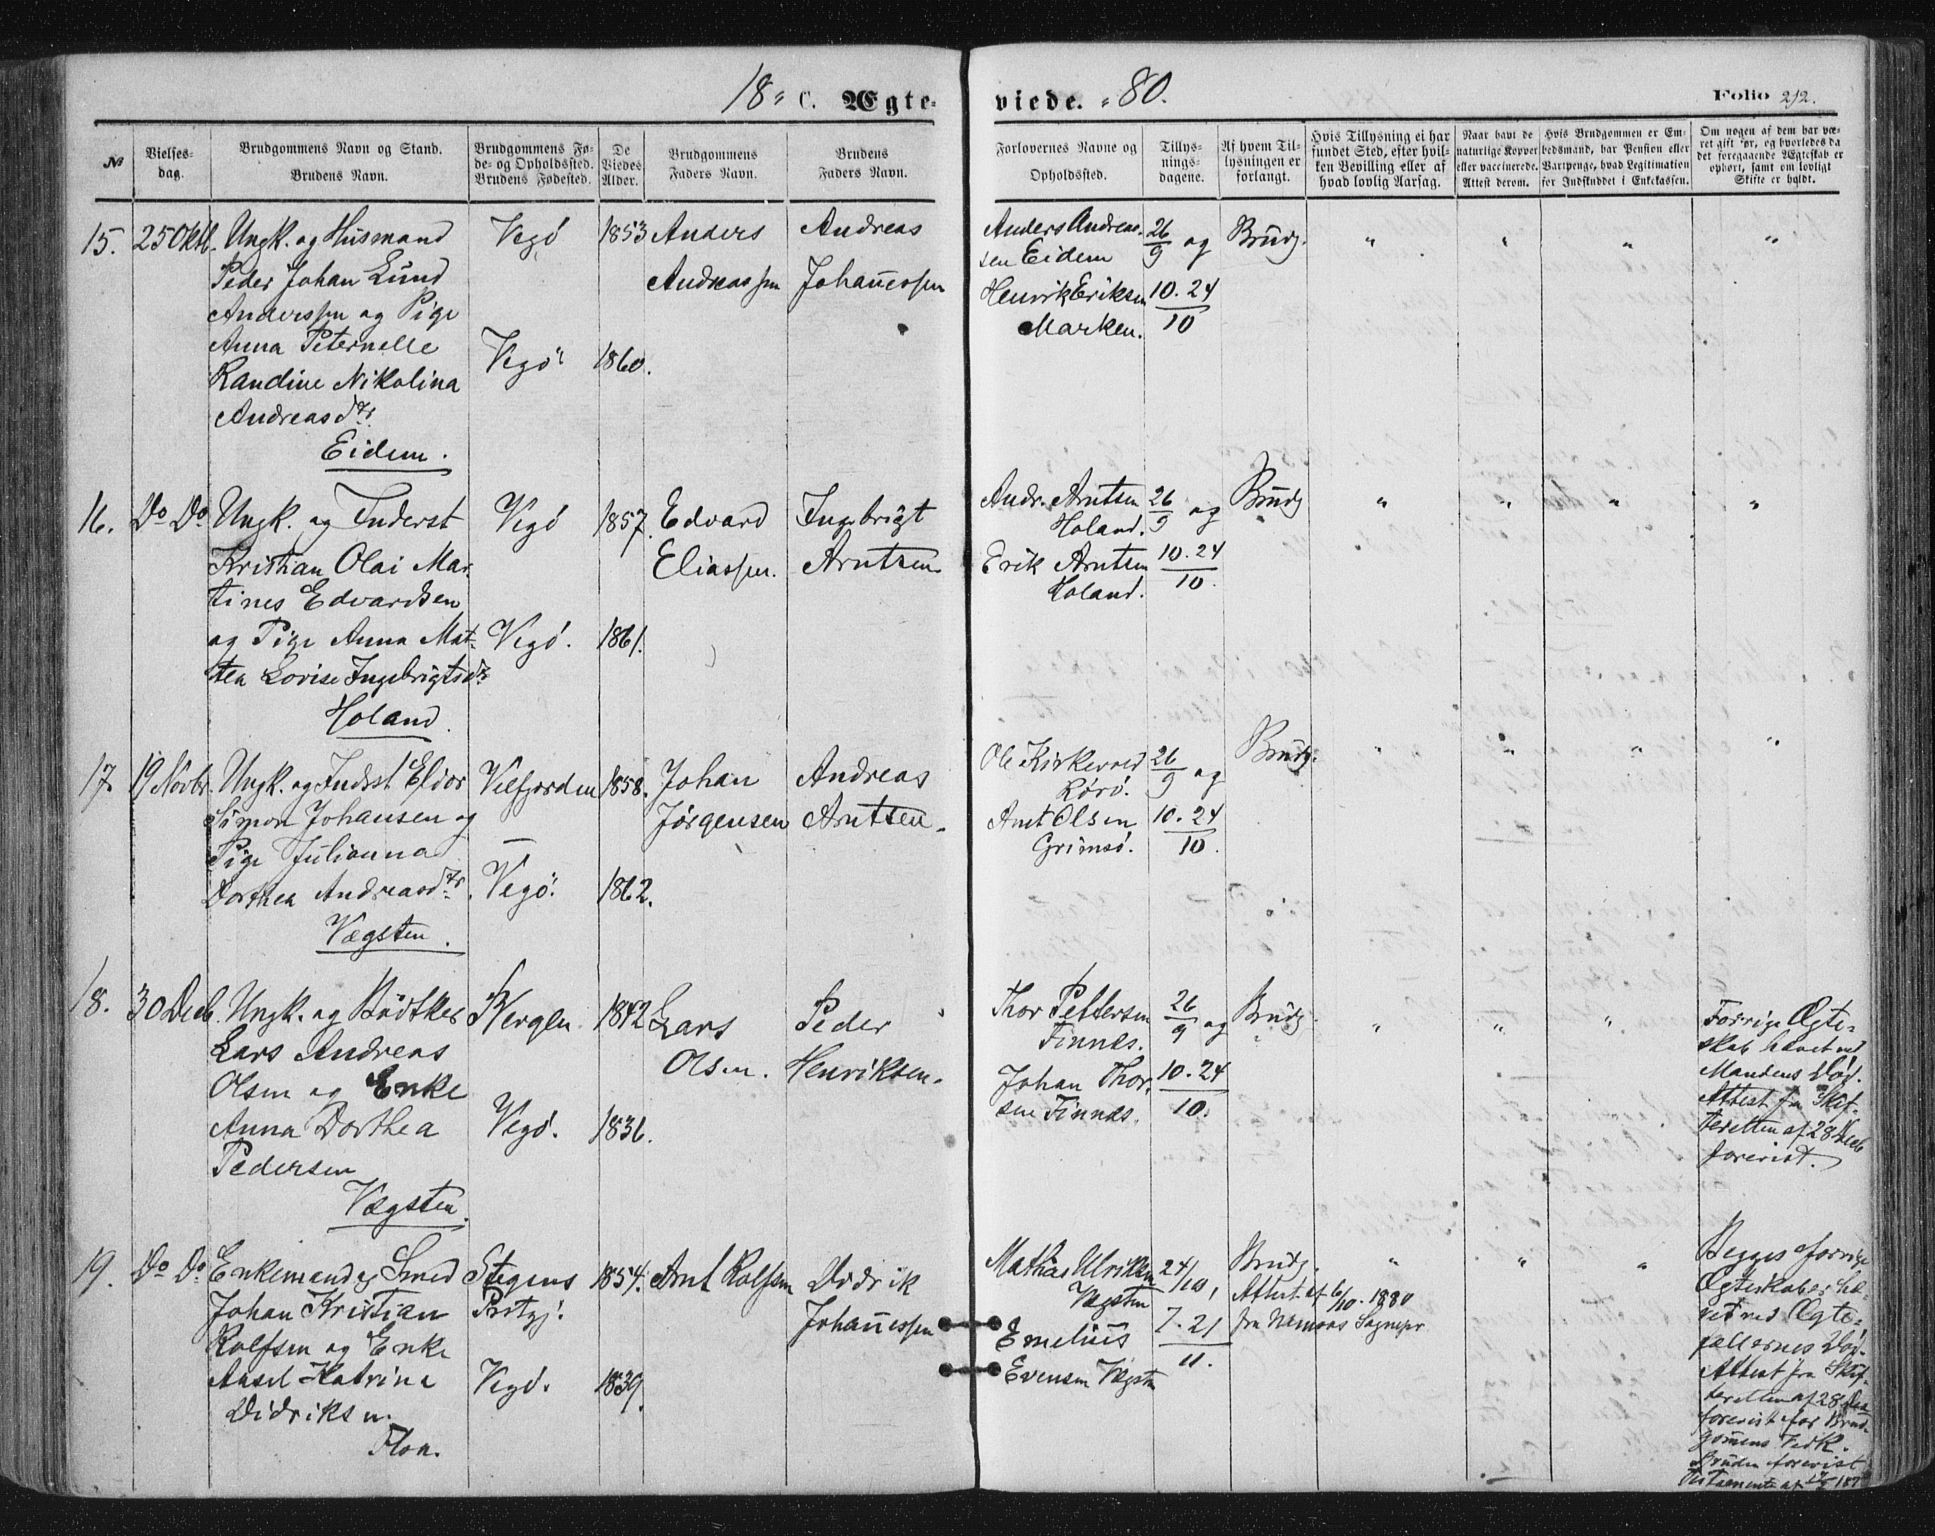 18 „ C. Ægte- viede. „ 80. Folio 212.
No
Vielses-dag.
Brudgommens Navn og Stand.
Brudens Navn.
Brudgommens Fø-
de- og Opholdssted.
Brudens Fødested.
De
Viedes
Alder.
Brudgommens
Faders Navn.
Brudens
Faders Navn.
Forlovernes Navne og
Opholdssted.
Tillys-
nings-
dagene.
Af hvem Til-
lysningen er
forlangt.
Hvis Tillysning ei har
fundet Sted, efter hvil-
ken Bevilling eller af
hvad lovlig Aarsag.
Naar havt de
naturlige Kopper
eller vaccinerede.
Attest derom.
Hvis Brudgommen er Em-
bedsmand, har Pension eller
Vartpenge, hvad Legitimation
for Indskuddet i Enkekassen.
Om nogen af dem har væ-
ret gift før, og hvorledes da
det foregaaende Ægteskab er
ophørt, samt om lovligt
Skifte er holdt.
15. 25 Oktb. Ungk. og Husmand
Peder Johan Lund
Anderssen og Pige
Anna Peternelle
Randine Nikolina
Andreasdtr.
Eidem.
Vegø
Vegø
1853
1860.
Anders
Andreassen
Andreas
Johannessen
Anders Andreas-
sen Eidem
Henrik Eriksen
Marken.
26/9 og
10. 24
10
Brudg. „ „ „ „
16. Do Do Ungk. og Inderst
Kristian Olai Mar-
tines Edvardsen
og Pige Anna Mat-
tea Lovise Ingebrigtsdr
Holand.
Vegø
Vegø.
1857.
1861.
Edvard
Eliassen.
Ingebrigt
Arntsen
Andr. Arntsen
Holand.
Erik Arntsen
Holand.
26/9 og
10. 24
10.
Brudg „ „ „ „
17. 19 Novbr. Ungk. og Indst Elior
Simon Johansen og
Pige Julianna
Dorthea Andreasdtr.
Vægsten.
Velfjorden
—
Vegø.
1858.
1862.
Johan
Jørgensen
Andreas
Arntsen.
Ole Kirkevold
Rørø.
Arnt Olsen
Grimsø.
26/9 og
10. 24
10.
Brudg. „ „ „ „
18. 30 Decb. Ungk. og Bødtker
Lars Andreas
Olsen og Enke
Anna Dorthea
Pedersen
Vægsten.
Bergen
Vegø.
1842
1836.
Lars
Olsen.
Peder
Henriksen.
Thor Pettersen
Finnes.
Johan Thor-
sen Finnes.
26/9 og
10. 24
10.
Brudg. „ „ „
Forrige Ægte-
skab hævet ved
Mandens Død.
Attest fra Skif-
teretten af 28 Decb
forevist.
19. Do Do Enkemand og Smed
Johan Kristian
Rolfsen og Enke
Ansel Katrina
Didriksen.
Floa.
Stegens
Prstgj.
Vegø.
1854.
1839.
Arnt Rolfsen
Didrik
Johannessen
Mathias Ulriksen
Vægsten
Emelius
Evensen Vægsten
24/10,
7. 21
11.
Brudg. „ „ „
Attest af 6/10. 1880
fra Namsos Sognepr
Begges forrige
Ægteskaber hæ-
vet ved Ægte-
fællernes Død.
Attest fra Skif-
teretten af 28 Dec
forevist for Brud-
gomens Vedk.
Bruden forevist
Testamente af